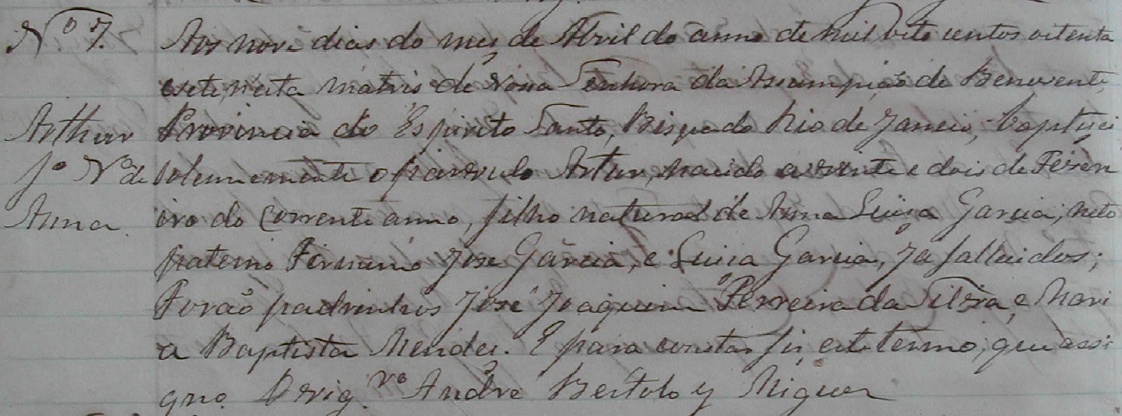 Nº 7. Aos nove dias do mes de Abril do anno de mil oito centos oitenta
e sete, nesta matris de Nossa Senhora da Assumpção de Benevente,
Arthur Provincia do Espirito Santo, Bispado Rio de Janeiro, baptisei
fº Nal de solennemente o parvulo Artur, nascido a vente e dois de Fever
Anna. eiro do corrente anno, filho natural de Anna Luisa Garcia, neto
paterno Firmino José Garcia, e Luisa Garcia, ja fallecidos;
Forão padrinhos José Joaquim Ferreira da Silva, e Mari
a Baptista Mendes. E para constar fis este termo, que assi
gno. O Vigrº André Bertolo y